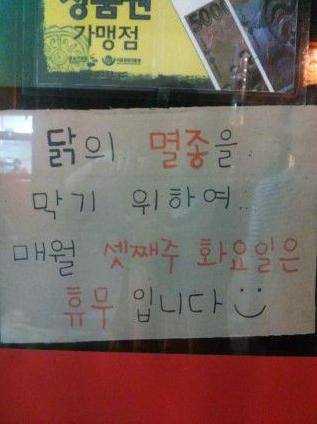 상품권
가맹점
5000
닭의 멸종을
막기 위하여...
매월 셋째주 화요일은
휴무 입니다